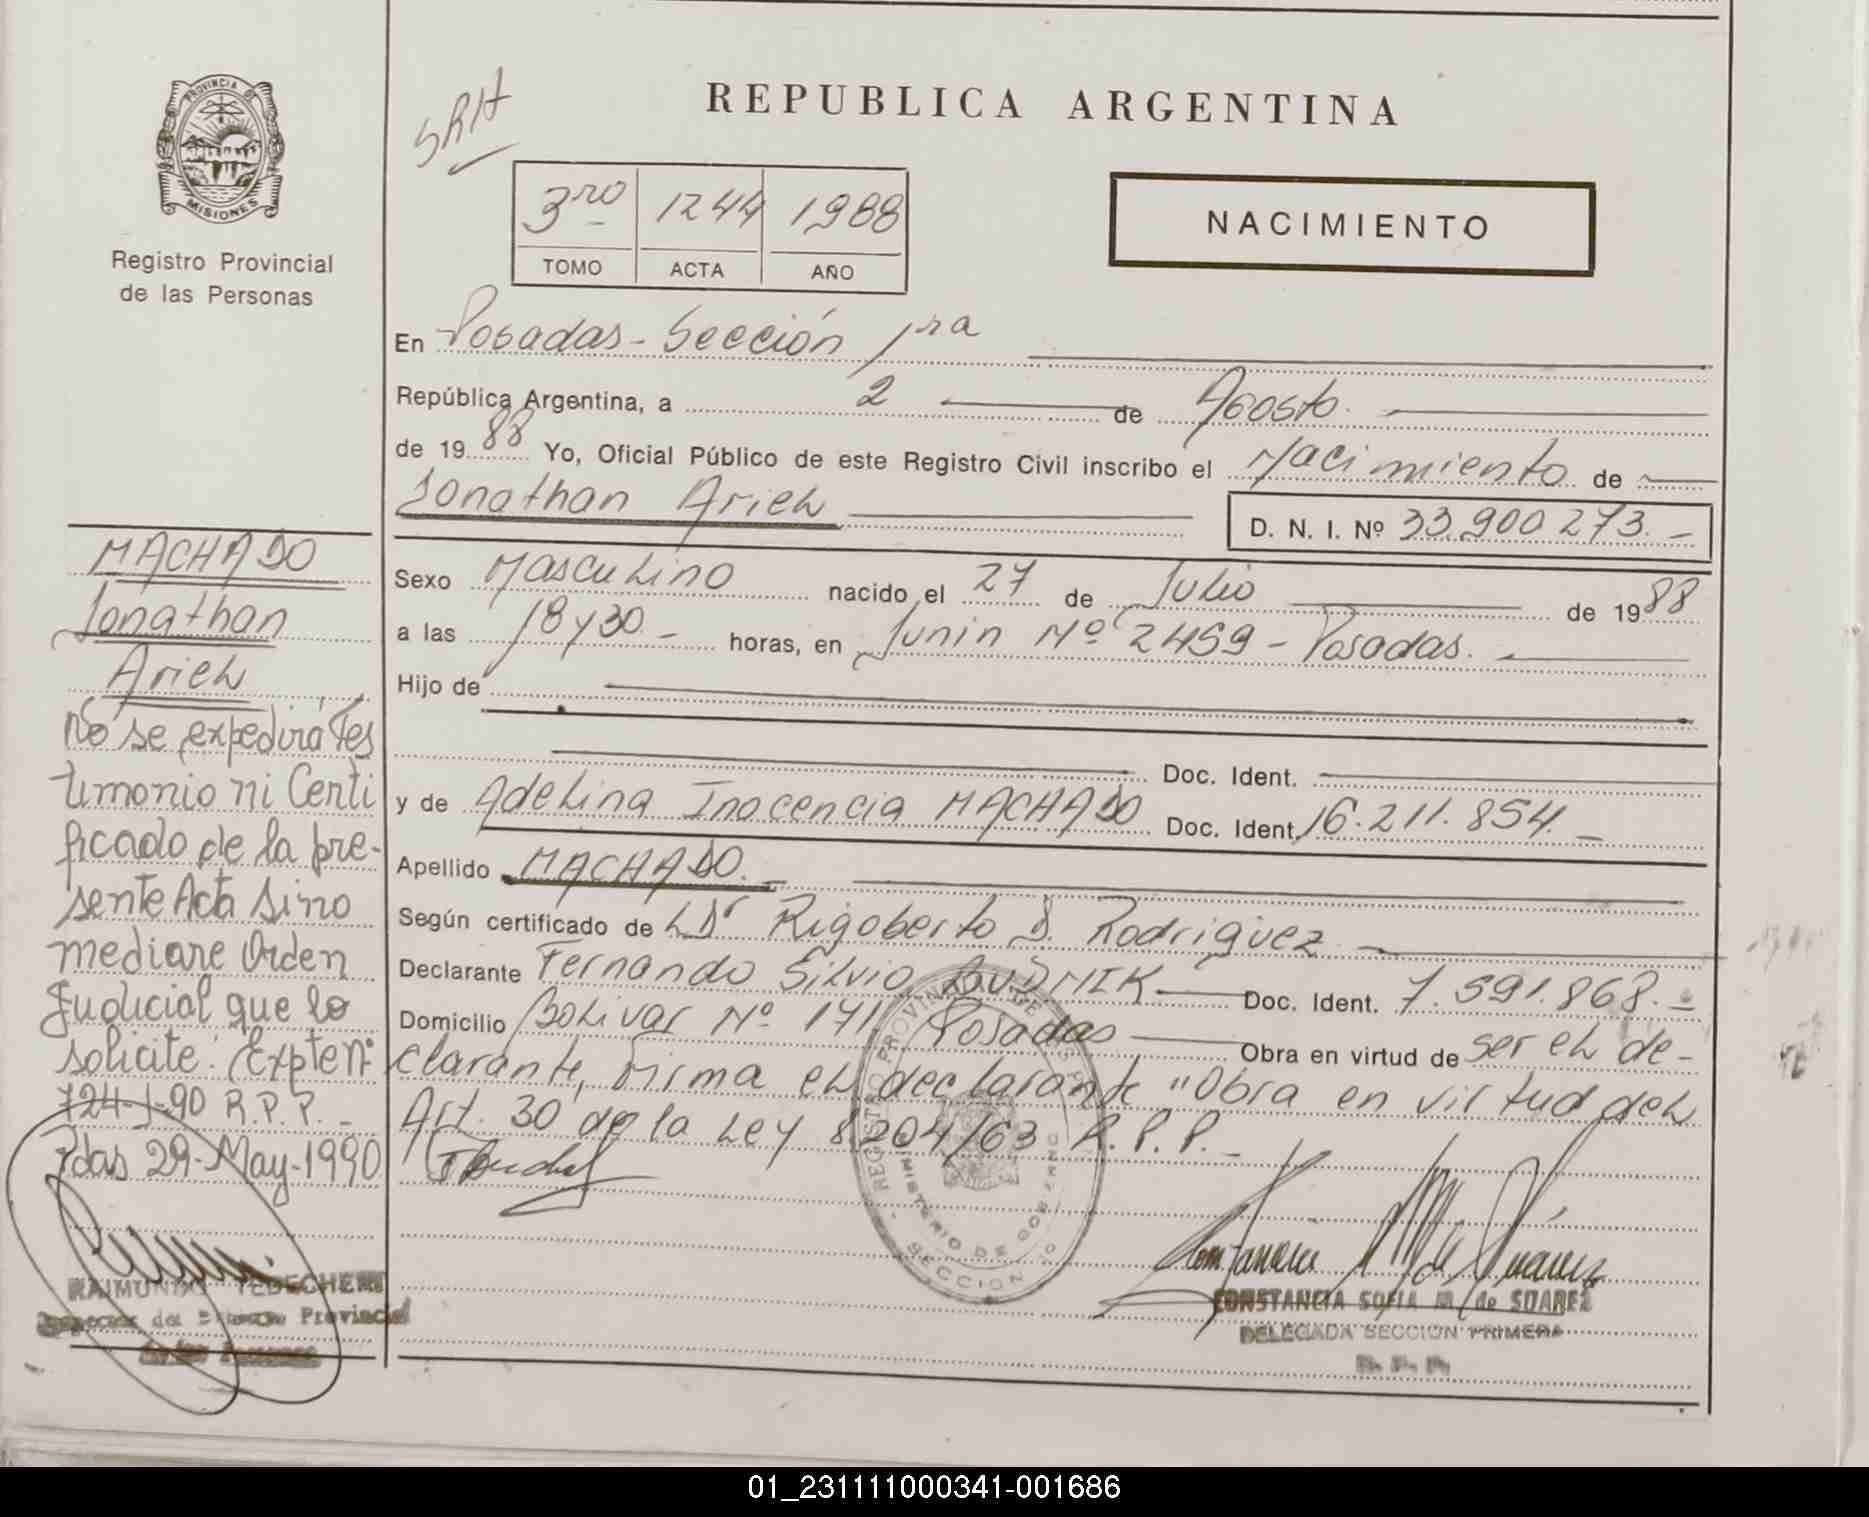 PROVINCIA DE
MISIONES
Registro Provincial
de las Personas
SRH
REPUBLICA ARGENTINA
3ro 1244 1988
TOMO ACTA AÑO
NACIMIENTO
En Posadas - Sección 1ra
República Argentina, a 2 de Agosto.
de 1988 Yo, Oficial Público de este Registro Civil inscribo el Nacimiento de
Jonathan Ariel
D. N. I. Nº 33.900 273.-
Sexo Masculino nacido el 27 de Julio de 1988
a las 18 y 30.- horas, en Junin Nº 2459 - Posadas.
Hijo de
Doc. Ident.
y de Adelina Inocencia MACHADO Doc. Ident. 16.211.854.-
Apellido MACHADO.-
Según certificado de L Dr Rigoberto S. Rodriguez
Declarante Fernando Silvio BUDMIK Doc. Ident. 7.591.868.-
Domicilio Bolivar Nº 171 Posadas Obra en virtud de ser el de-
clarante, Firma el declarante "Obra en virtud del
Art. 30 de la Ley 8204/63 R.P.P.-
MACHADO
Jonathan
Ariel
No se expedirá Tes
timonio ni Certi
ficado de la pre-
sente Acta sino
mediare Orden
Judicial que lo
solicite: Expten:
724-J-90 R.P.P.-
Pdas 29-May-1990
RAIMUNDO TEDECHEMI
Provincial
de las Personas
MINISTERIO DE GOBIERNO
SECCION
Constancia M de Suárez
CONSTANCIA SOFIA M. de SUAREZ
DELEGADA SECCION PRIMERA
01_231111000341-001686